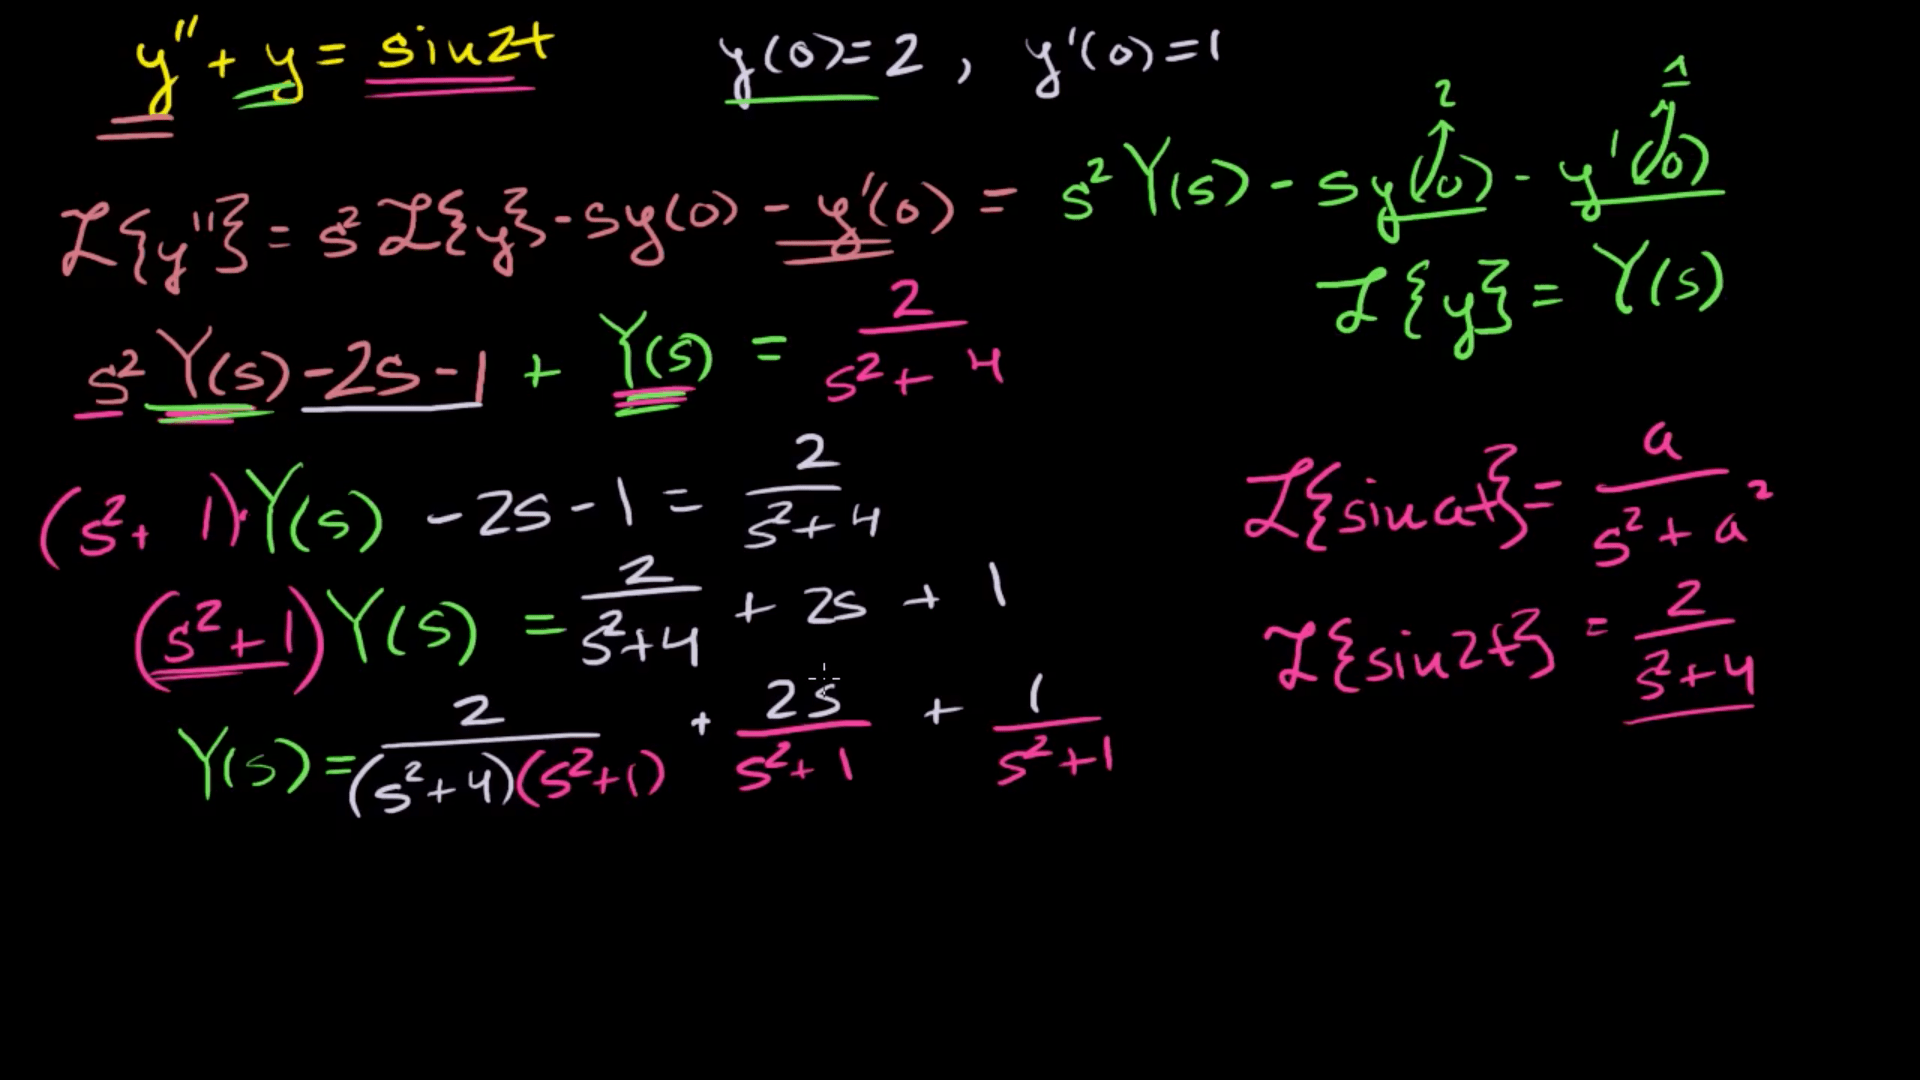 y'' + y = sin2t    y(0)=2 , y'(0)=1
2    1
ℒ{y''} = s² ℒ{y} - sy(0) - y'(0) = s² Y(s) - sy(0) - y'(0)
ℒ{y} = Y(s)
s² Y(s) - 2s - 1 + Y(s) = 2/(s² + 4)
(s² + 1)·Y(s) - 2s - 1 = 2/(s² + 4)
ℒ{sin at} = a/(s² + a²)
(s² + 1) Y(s) = 2/(s² + 4) + 2s + 1
ℒ{sin2t} = 2/(s² + 4)
Y(s) = 2/((s² + 4)(s² + 1)) + 2s/(s² + 1) + 1/(s² + 1)